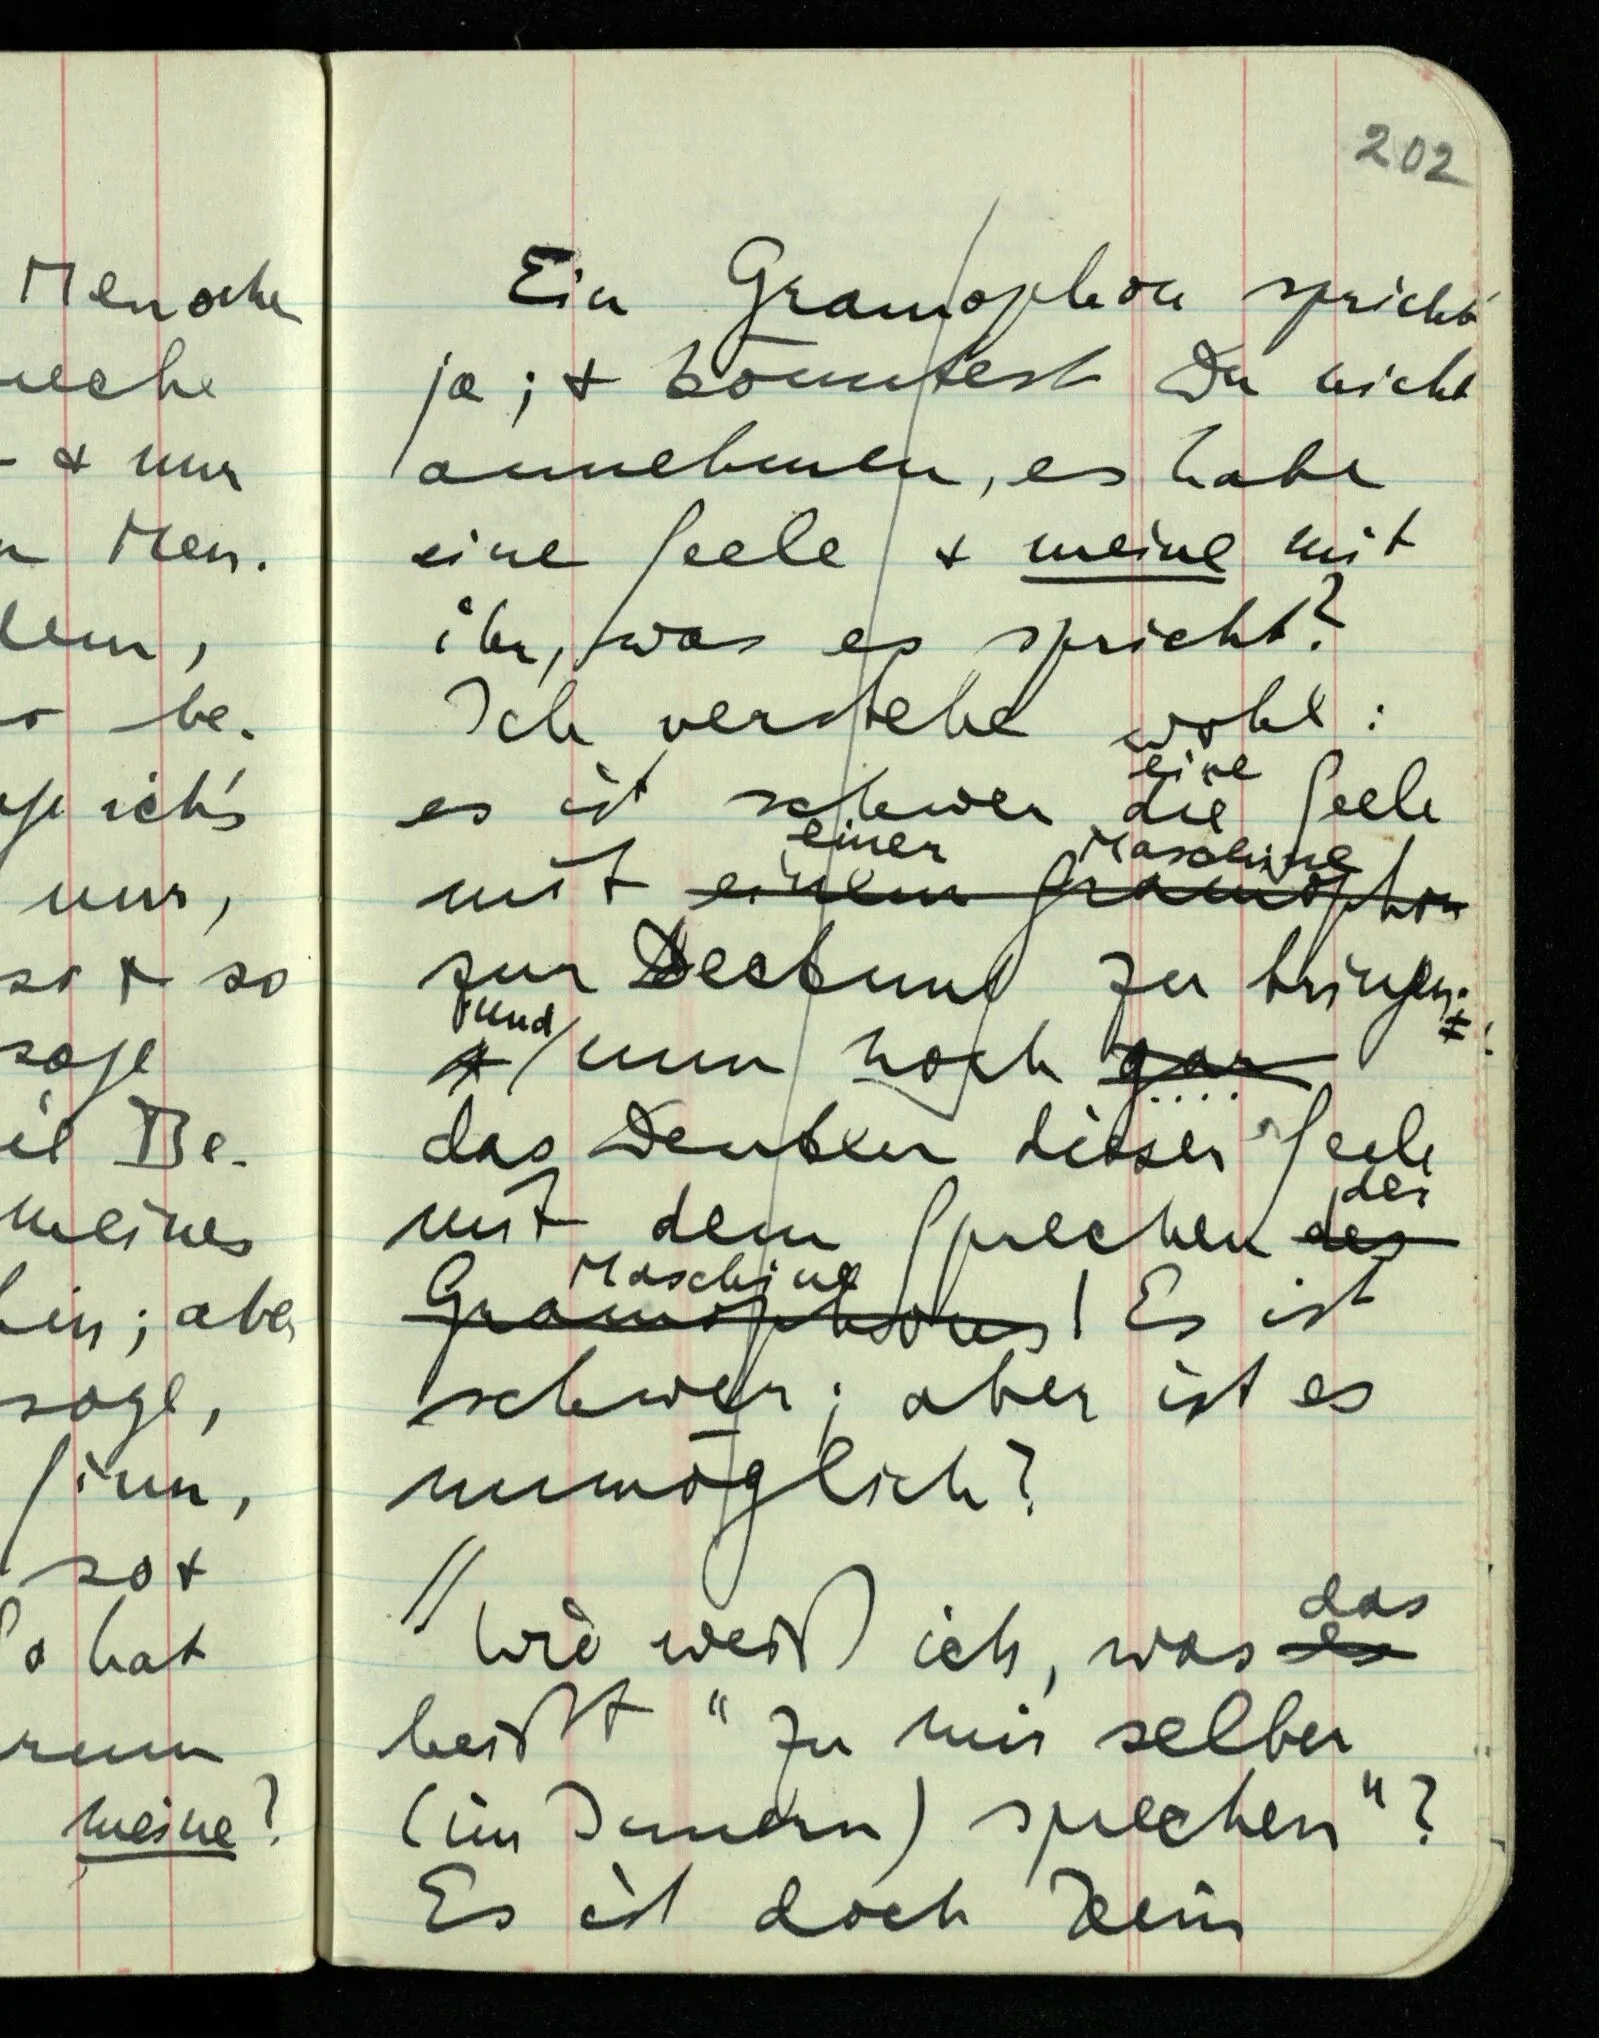 202
Mensche
- & nur
Men.
be.
ich's
nur,
so & so
sage
Be-
meines
hin; aber
sage,
Sinn,
so &
hat
meine?
Ein Gramophon spricht
ja; & könntest Du nicht
annehmen, es habe
eine Seele & meine mit
ihr, was es spricht?
Ich verstehe wohl:
eine
es ist schwer die Seele
einer Maschine
mit einem Gramophon
zur Deckung zu bringen.
und
& nun noch gar
das Denken dieser Seele
der
mit dem Sprechen des
Maschine
Gramophons! Es ist
schwer; aber ist es
unmöglich?
das
// Wie weiß ich, was es
heißt "zu mir selber
(im Innern) sprechen"?
Es ist doch kein